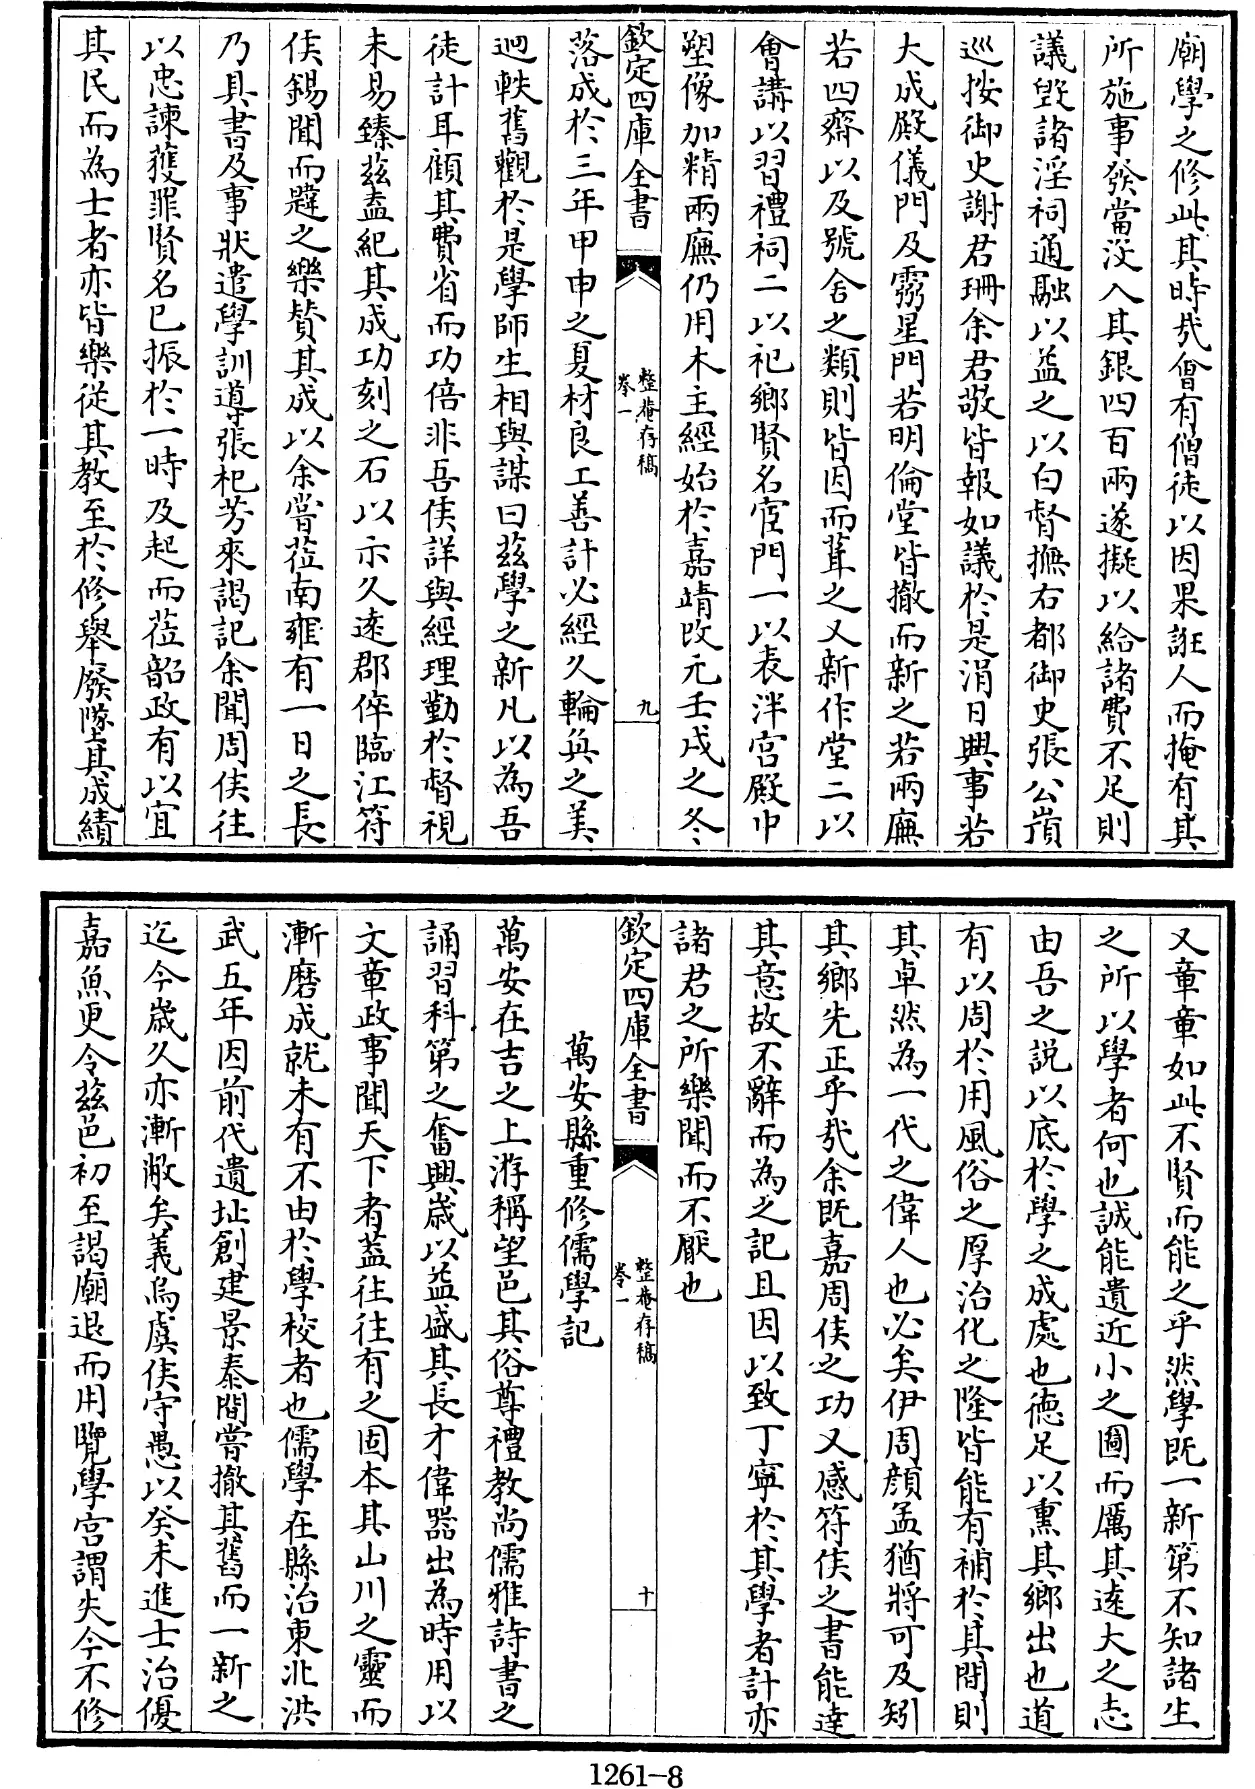 廟學之修此其時哉會有僧徒以因果誑人而掩有其
所施事發當沒入其銀四百兩遂擬以給諸費不足則
議毀諸淫祠通融以益之以白督撫右都御史張公嵿
巡按御史謝君珊余君敬皆報如議於是涓日興事若
大成殿儀門及霛星門若明倫堂皆撤而新之若兩廡
若四齋以及號舍之類則皆因而葺之又新作堂二以
會講以習禮祠二以祀鄉賢名宦門一以表泮宫殿中
塑像加精兩廡仍用木主經始於嘉靖改元壬戌之冬
欽定四庫全書
整菴存稿
卷一
九
落成於三年甲申之夏材良工善計必經久輪奐之美
迥軼舊觀於是學師生相與謀曰兹學之新凡以為吾
徒計耳顧其費省而功倍非吾侯詳與經理勤於督視
未易臻兹盍紀其成功刻之石以示久逺郡倅臨江符
侯錫聞而韙之樂賛其成以余嘗蒞南雍有一日之長
乃具書及事狀遣學訓導張祀芳來謁記余聞周侯往
以忠諫獲罪賢名已振於一時及起而蒞韶政有以宜
其民而為士者亦皆樂從其教至於修舉廢隊其成績
又章章如此不賢而能之乎然學既一新第不知諸生
之所以學者何也誠能遺近小之圖而厲其逺大之志
由吾之説以底於學之成處也德足以熏其鄉出也道
有以周於用風俗之厚治化之隆皆能有補於其間則
其卓然為一代之偉人也必矣伊周顔孟猶將可及矧
其鄉先正乎哉余既嘉周侯之功又感符侯之書能達
其意故不辭而為之記且因以致丁寧於其學者計亦
諸君之所樂聞而不厭也
欽定四庫全書
整菴存稿
卷一
十
萬安縣重修儒學記
萬安在吉之上游稱望邑其俗尊禮教尚儒雅詩書之
誦習科第之奮興歳以益盛其長才偉器出為時用以
文章政事聞天下者葢往往有之固本其山川之靈而
漸磨成就未有不由於學校者也儒學在縣治東北洪
武五年因前代遺址創建景泰間嘗撤其舊而一新之
迄今歳久亦漸敝矣義烏虞侯守愚以癸未進士治優
嘉魚更令兹邑初至謁廟退而用覽學宫謂失今不修
1261-8